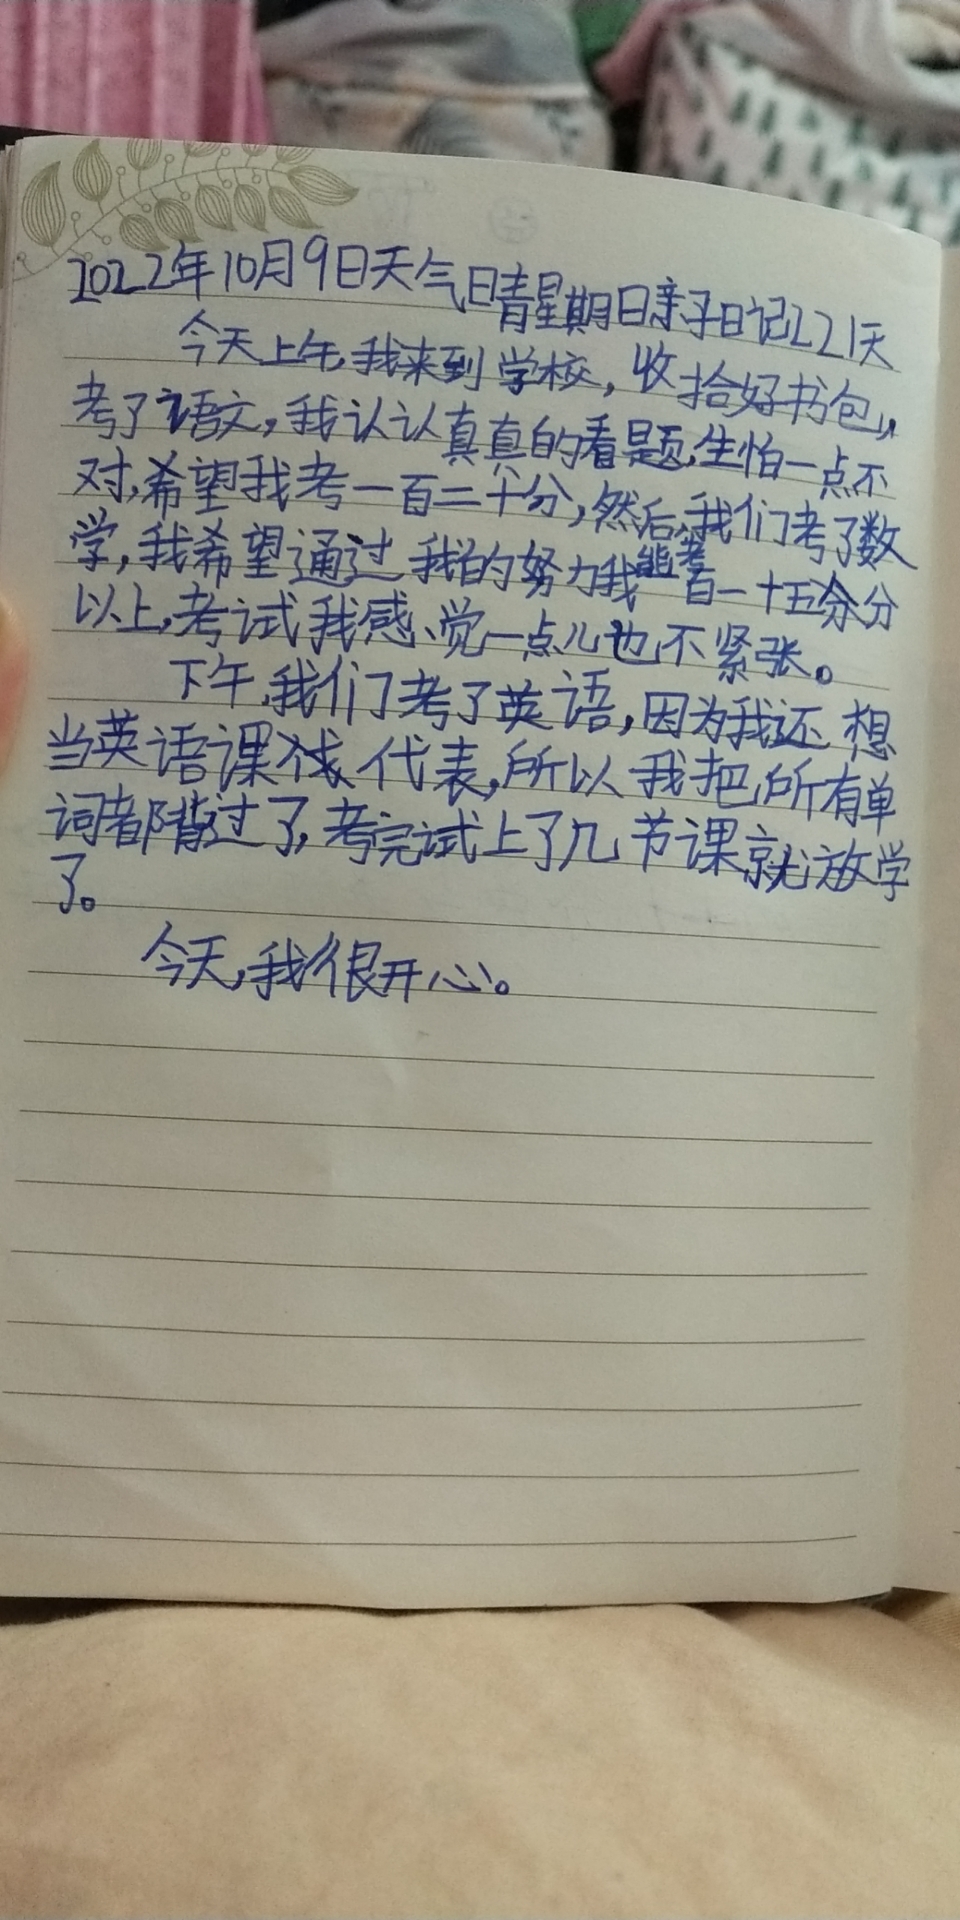 2022年10月9日天气日青星期日亲子日记221天
今天上午,我来到学校,收拾好书包,
考了语文,我认认真真的看题,生怕一点不
对,希望我考一百二十分,然后,我们考了数
学,我希望通过我的努力我能考百一十五分
以上,考试我感觉一点儿也不紧张。
下午,我们考了英语,因为我还想
当英语课代表,所以我把所有单
词都背过了,考完试上了几节课就放学
了。
今天,我很开心。